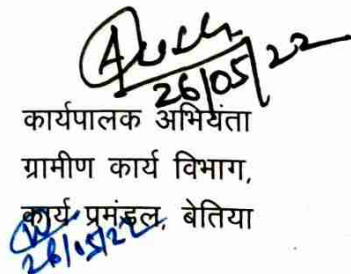 26/05/22
कार्यपालक अभियंता
ग्रामीण कार्य विभाग,
कार्य प्रमंडल, बेतिया
26/05/22